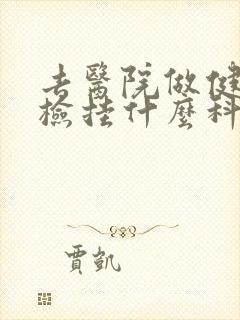 去醫院做健
檢挂什麼科
賈凱